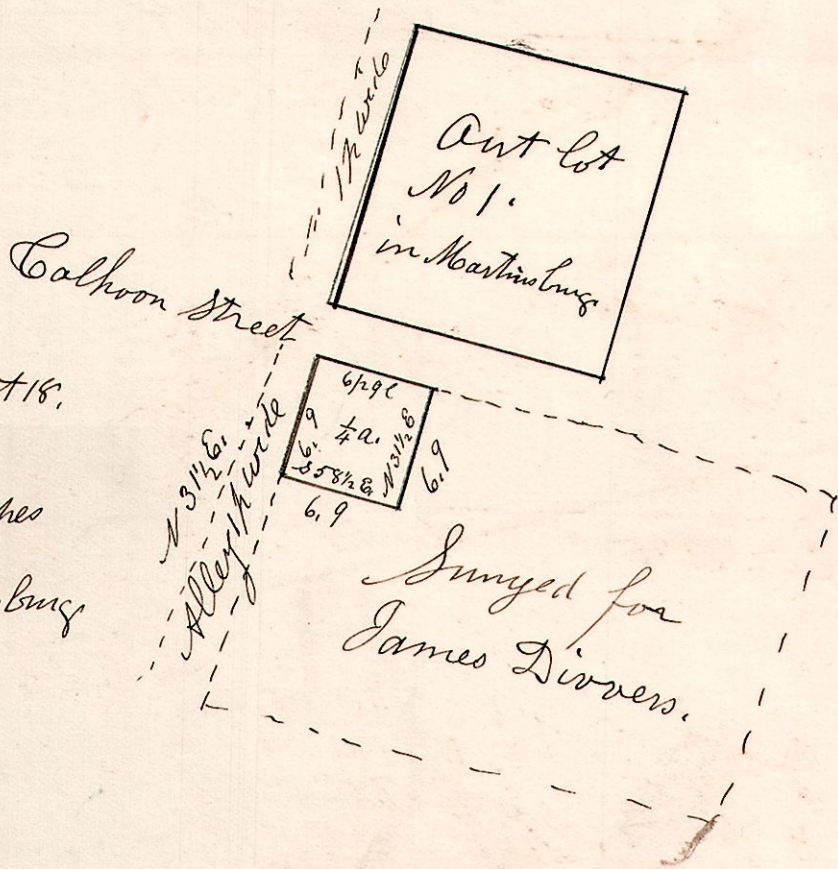 1 p wide
Out lot
No 1.
in Martinsburg
Calhoon Street
t 18.
hes
burg
N 31½ E.
Alley 1 p wide
6 p 9 l
6.9
¼ a.
S 58½ E.
N 31½ E
6.9
6.9
Survyed for
James Divvers.